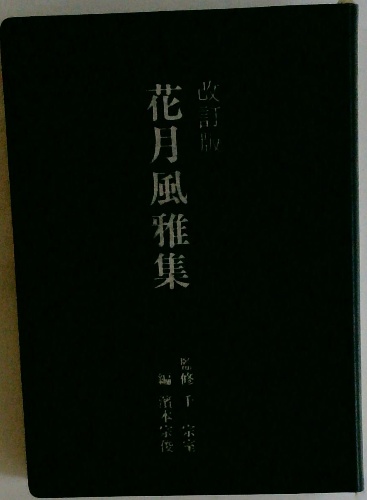 改訂版
花月風雅集
監修 千 宗室
編 濱本宗俊